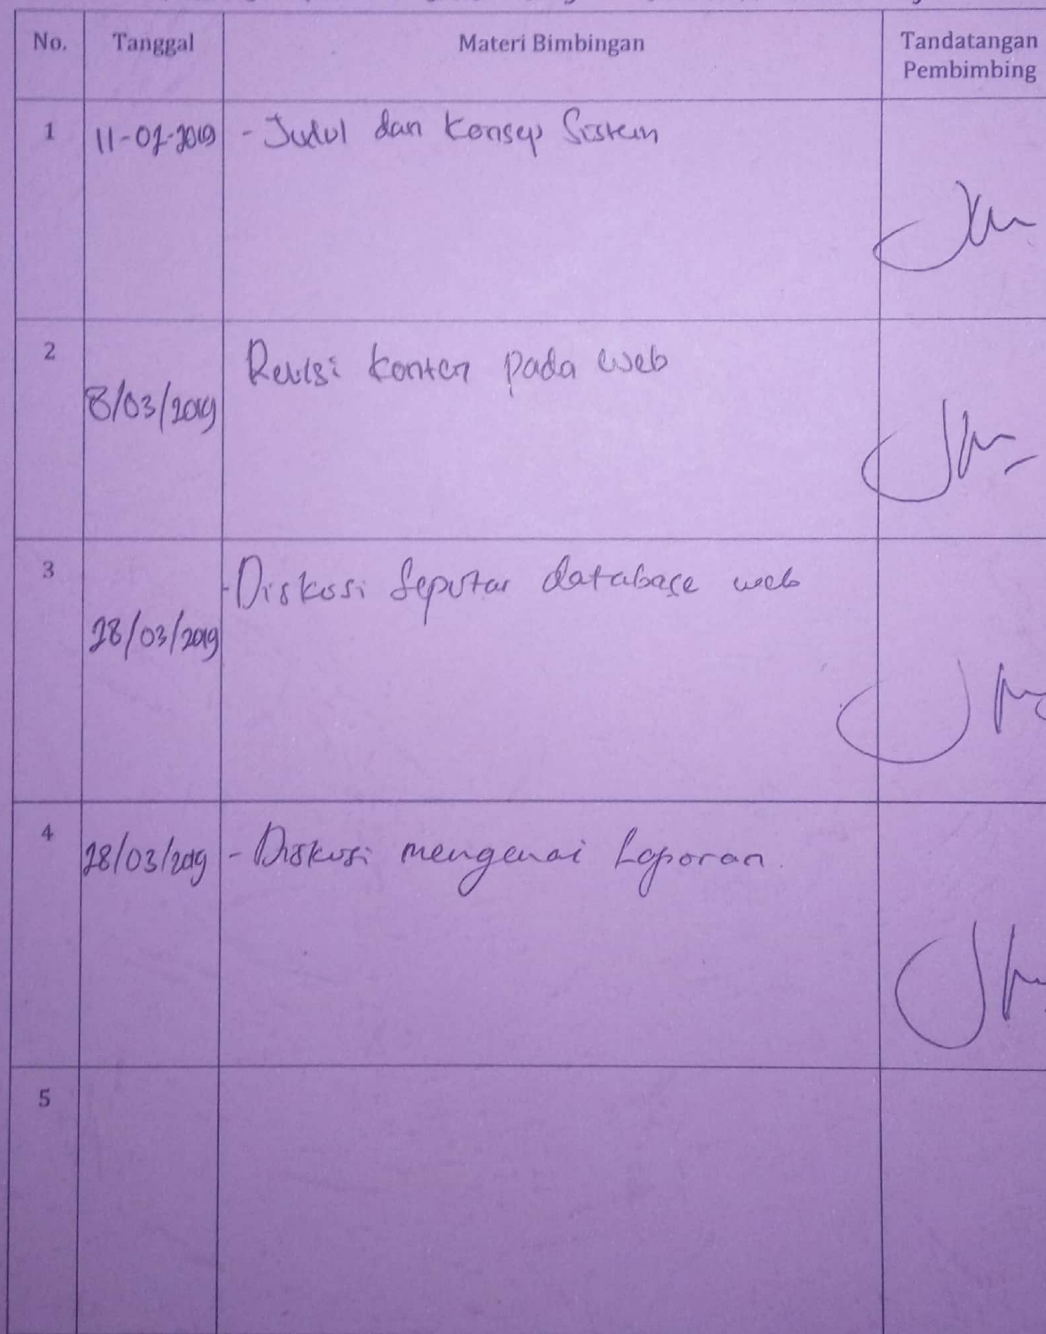 No. Tanggal Materi Bimbingan Tandatangan
Pembimbing
1 11-02-2019 - Judul dan Konsep Sistem
2 Revisi konten pada web
8/03/2019
3 - Diskusi Seputar database web
28/03/2019
4 28/03/2019 - Diskusi mengenai Laporan
5